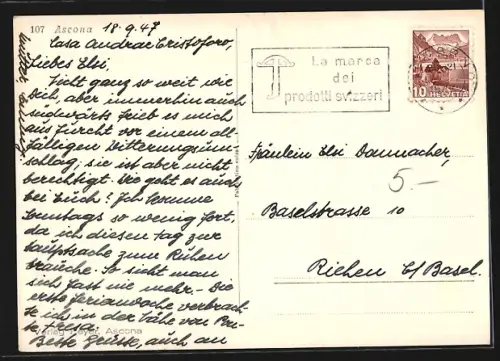 107 Ascona
18.9.47
Casa Andrae Cristoforo,
Liebes Elsi,
Nicht ganz so weit wie
Dich, aber immerhin auch
südwärts trieb es mich
aus Furcht vor einem all-
fälligen Witterungsum-
schlag; sie ist aber nicht
berechtigt. Wie geht es auch
bei Euch? Ich komme
Sonntags so wenig fort,
da ich diesen Tag zur
Hauptsache zum Ruhen
brauche. So sieht man
sich fast nie mehr. – Die
erste Ferienwoche verbrach-
te ich in der Nähe von
Verlag Ascona
Beste Grüsse, auch an
La marca
dei
prodotti svizzeri
10 HELVETIA
Fräulein Elsi Danmacher,
5.–
Baselstrasse 10
Riehen b/Basel.